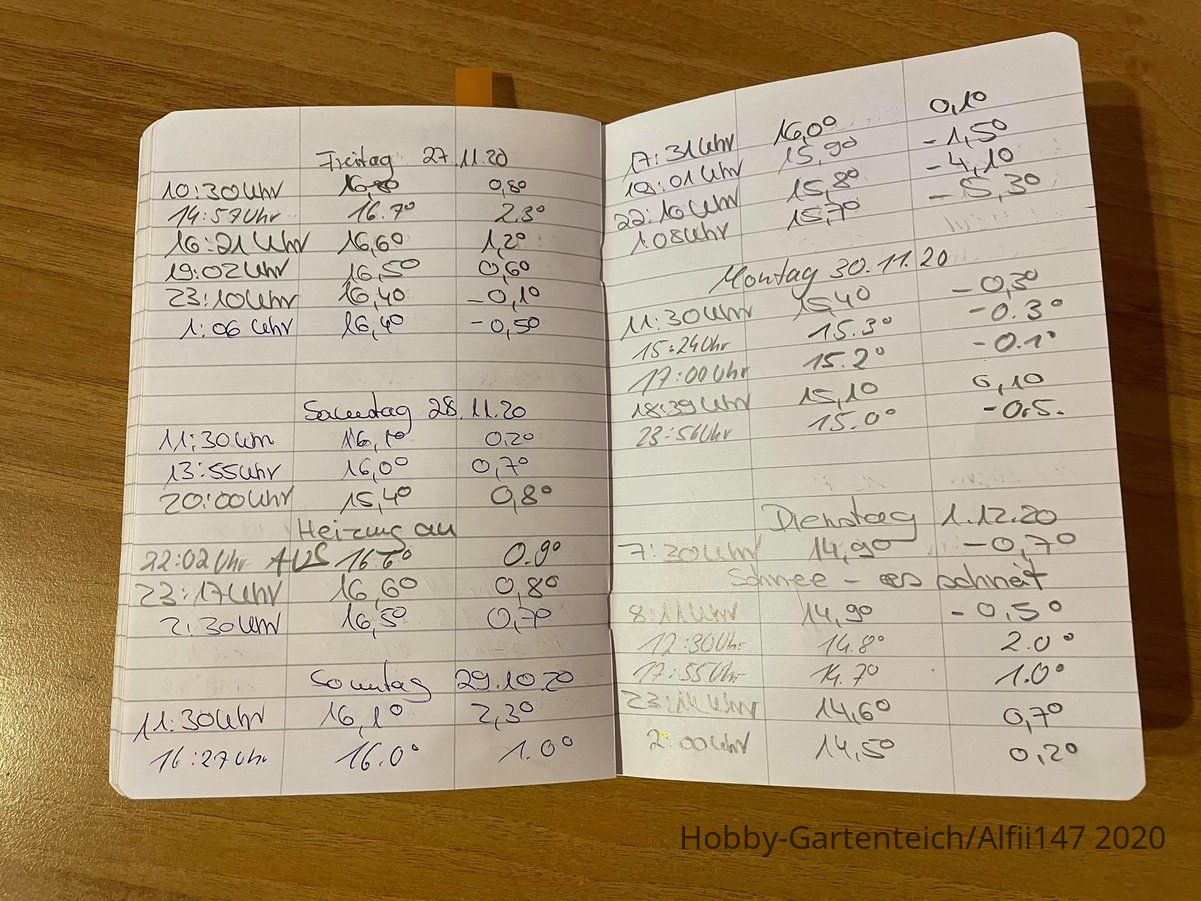 Freitag 27.11.20
10:30Uhr 0,8°
14:57Uhr 16.7° 2.3°
16:21Uhr 16,6° 1,2°
19:02Uhr 16,5° 0,6°
23:10Uhr 16,4° -0,1°
1:06 Uhr 16,4° -0,5°
Samstag 28.11.20
11:30Uhr 16,1° 0.2°
13:55Uhr 16,0° 0,7°
20:00Uhr 15,4° 0,8°
Heizung an
22:02Uhr AUS 16.6° 0.9°
23:17Uhr 16,6° 0,8°
2:30Uhr 16,5° 0,7°
Sonntag 29.10.20
11:30Uhr 16,1° 2,3°
16:27Uhr 16.0° 1.0°
17:31Uhr 16,0° 0,1°
19:01Uhr 15,9° -1,5°
22:16Uhr 15,8° -4,1°
1:08Uhr 15,7° -5,3°
Montag 30.11.20
11:30Uhr 15,4° -0,3°
15:24Uhr 15.3° -0.3°
17:00Uhr 15.2° -0.1°
18:39Uhr 15,1° 0,1°
23:56Uhr 15.0° -0.5.
Dienstag 1.12.20
7:30Uhr 14,9° -0,7°
Schnee - es schneit
8:11Uhr 14,9° -0,5°
12:30Uhr 14.8° 2.0°
17:55Uhr 14.7° 1.0°
23:11Uhr 14,6° 0,7°
2:00Uhr 14,5° 0,2°
Hobby-Gartenteich/Alfii147 2020